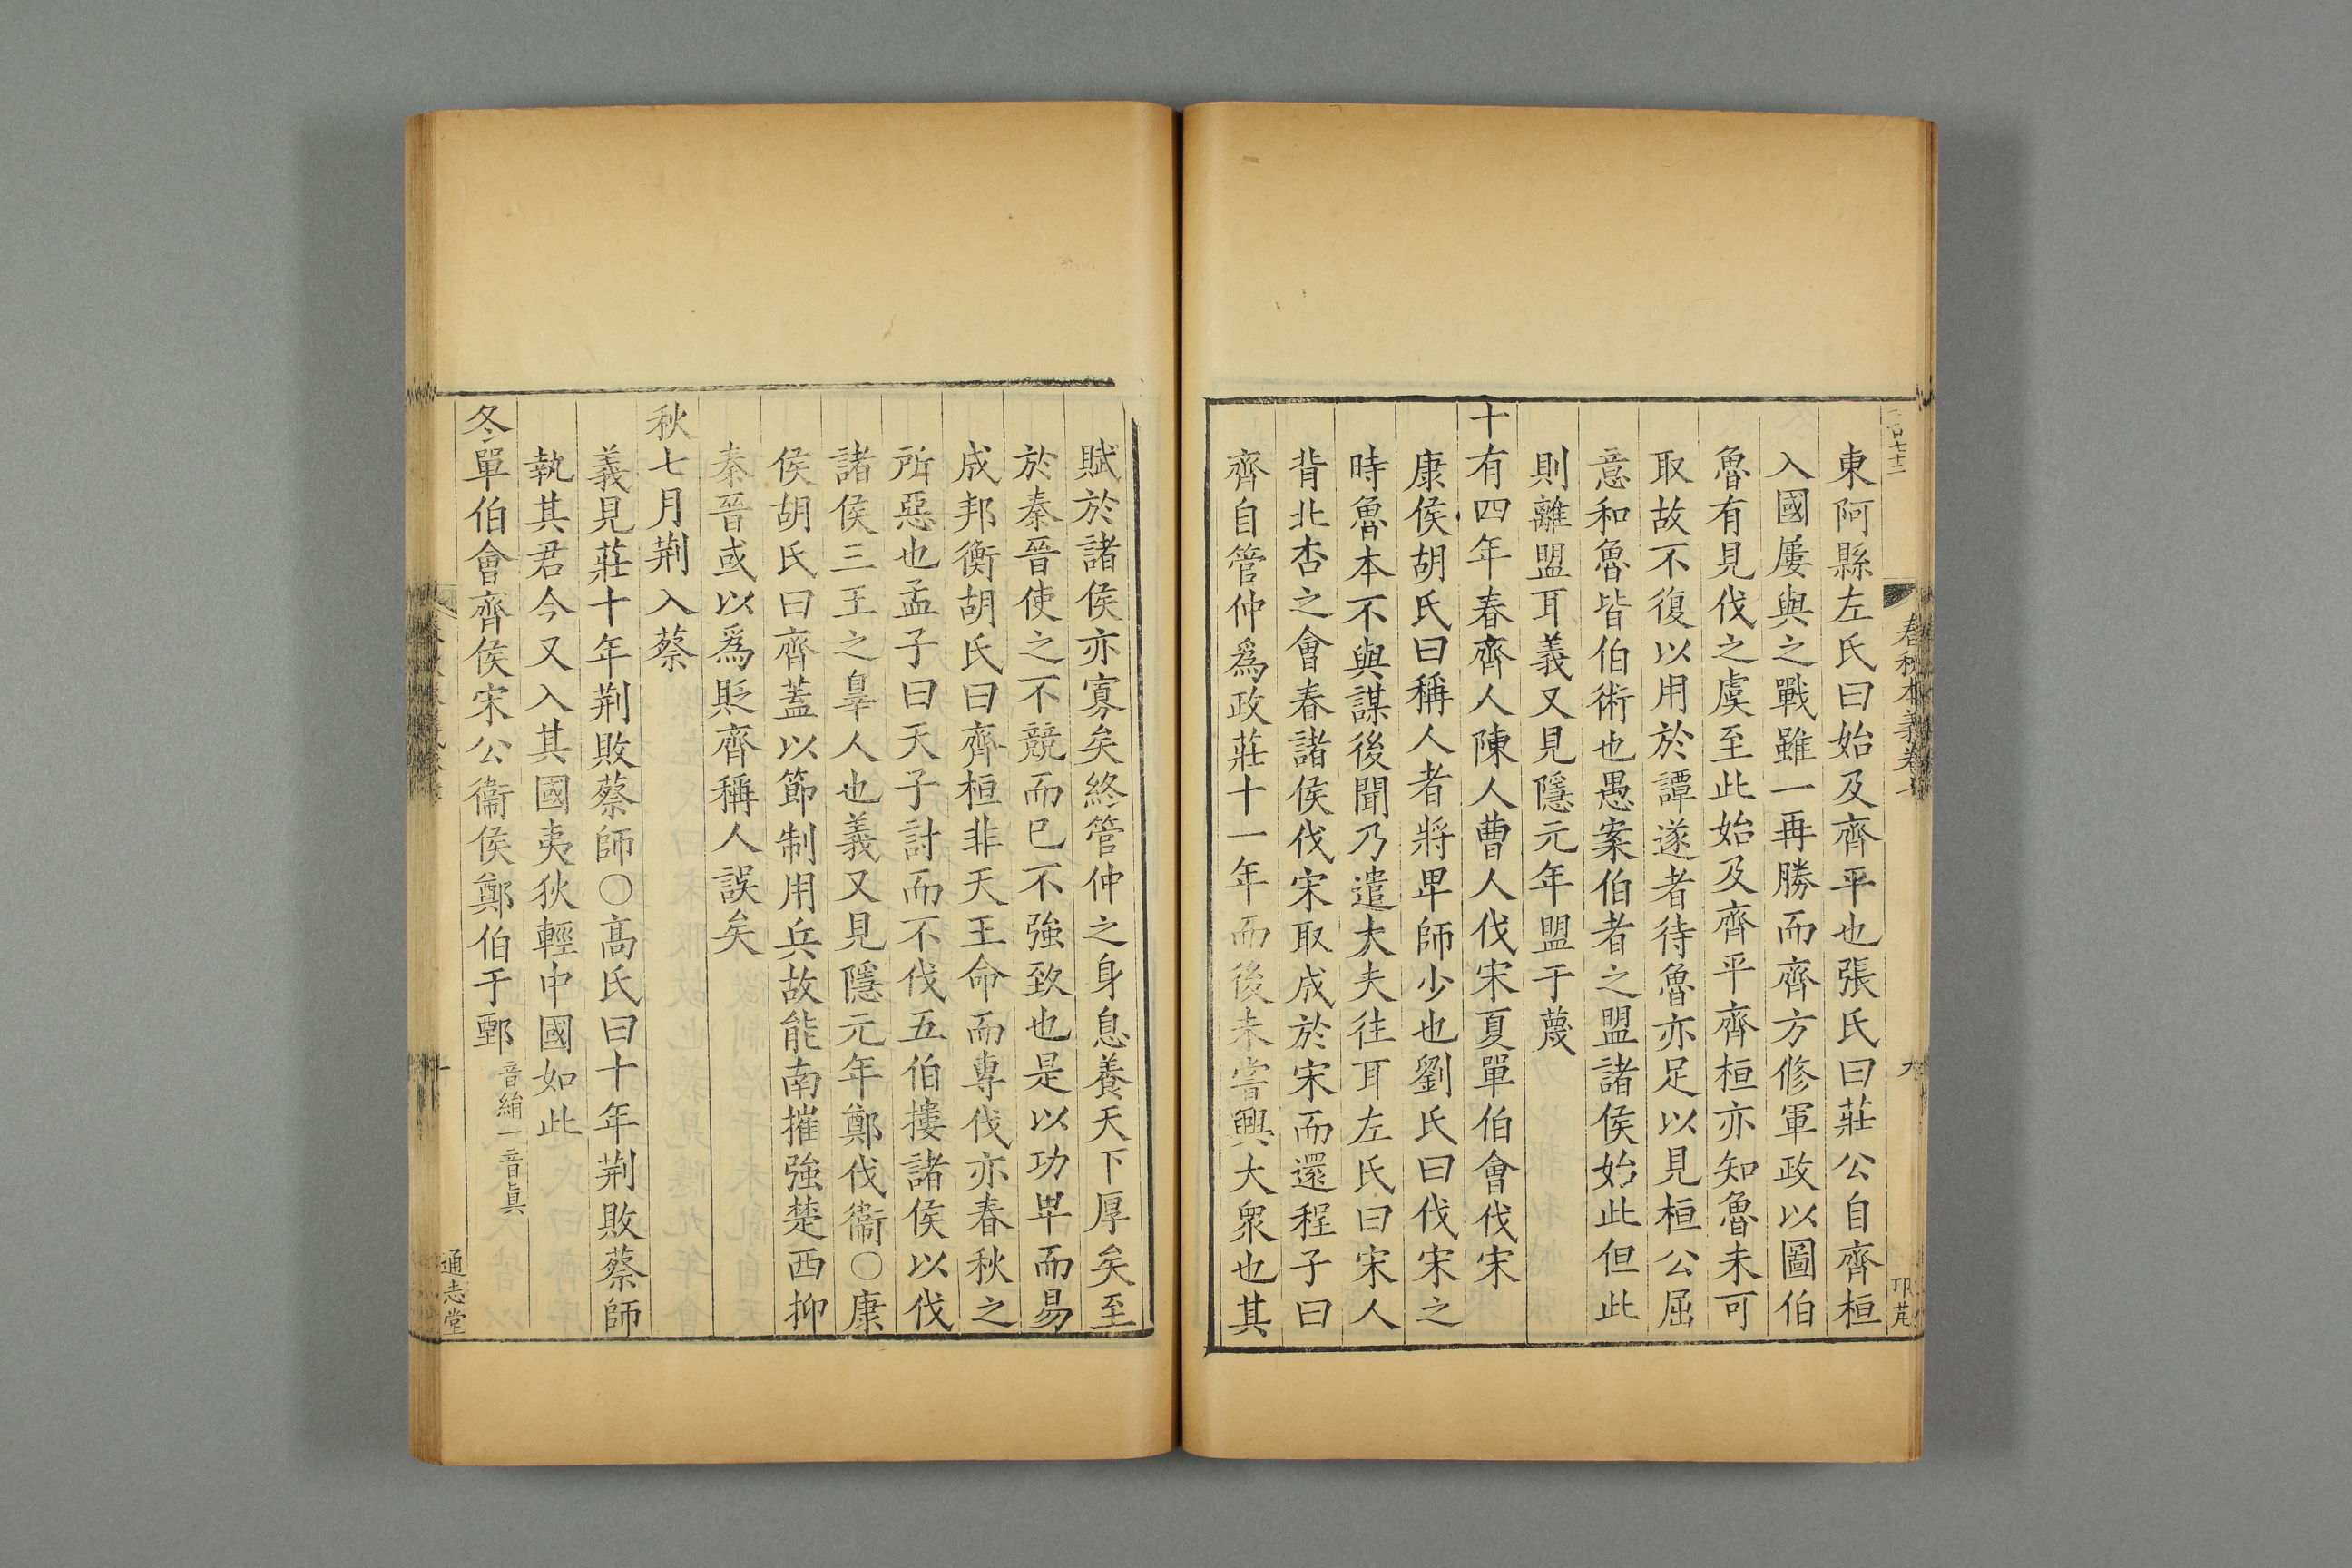 春秋本義卷
九
東阿縣左氏曰始及齊平也張氏曰莊公自齊桓
入國屢與之戰雖一再勝而齊方修軍政以圖伯
魯有見伐之虞至此始及齊平齊桓亦知魯未可
取故不復以用於譚遂者待魯亦足以見桓公屈
意和魯皆伯術也愚案伯者之盟諸侯始此但此
則離盟耳義又見隱元年盟于蔑
十有四年春齊人陳人曹人伐宋夏單伯會伐宋
康侯胡氏曰稱人者將卑師少也劉氏曰伐宋之
時魯本不與謀後聞乃遣大夫往耳左氏曰宋人
背北杏之會春諸侯伐宋取成於宋而還程子曰
齊自管仲爲政莊十一年而後未嘗興大衆也其
賦於諸侯亦寡矣終管仲之身息養天下厚矣至
於秦晉使之不競而已不強致也是以功卑而易
成邦衡胡氏曰齊桓非天王命而專伐亦春秋之
所惡也孟子曰天子討而不伐五伯摟諸侯以伐
諸侯三王之辠人也義又見隱元年鄭伐衞○康
侯胡氏曰齊蓋以節制用兵故能南摧強楚西抑
秦晉或以爲貶齊稱人誤矣
秋七月荆入蔡
義見莊十年荆敗蔡師○高氏曰十年荆敗蔡師
執其君今又入其國夷狄輕中國如此
冬單伯會齊侯宋公衞侯鄭伯于鄄音絹一音眞
通志堂